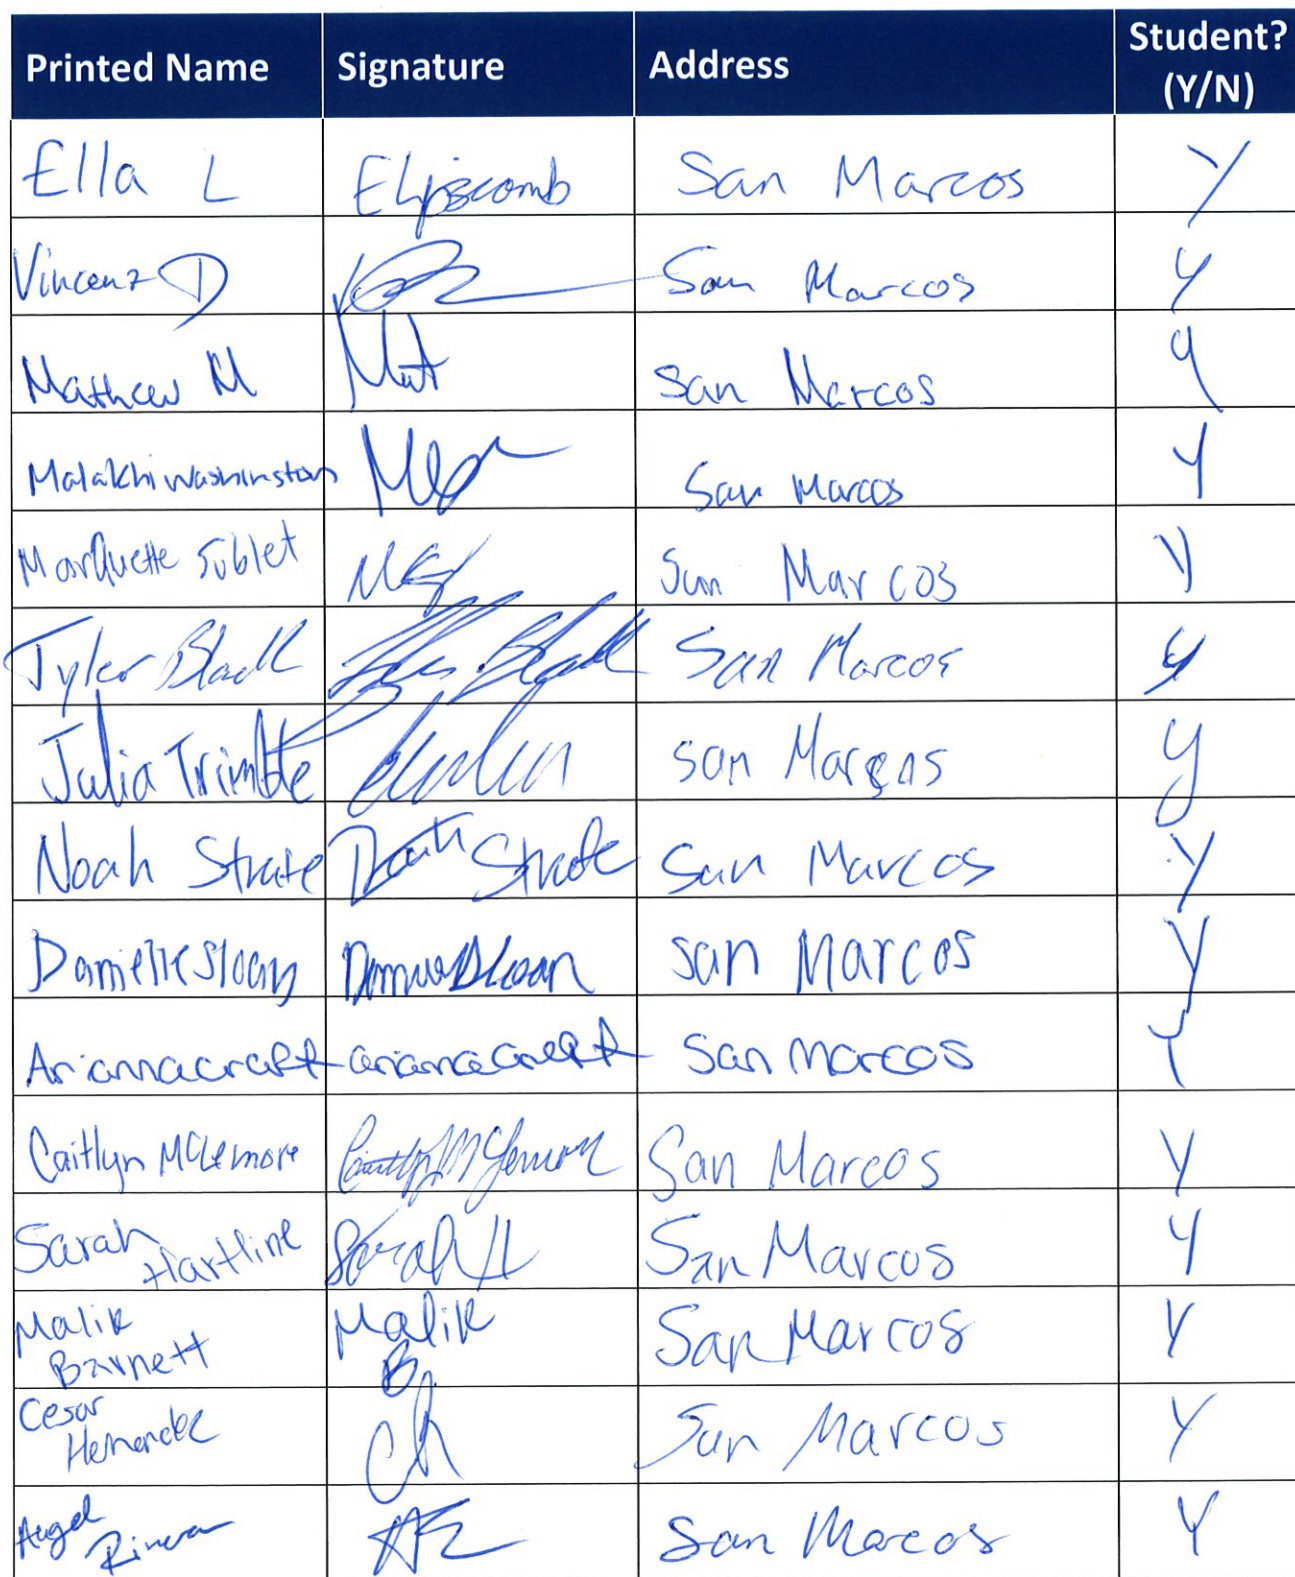 Printed Name Signature Address Student? (Y/N)
Ella L Elipscomb San Marcos Y
Vincenz D San Marcos Y
Matthew M Mat San Marcos Y
Malakhi Washinston San Marcos Y
MarQuette Sublet San Marcos Y
Tyler Black Tyler Black San Marcos y
Julia Trimble San Marcos y
Noah Strate Strate San Marcos Y
Danielle Sloan Sloan San Marcos Y
Arianna craft arianna craft San marcos Y
Caitlyn McLemore Caitlyn McLemore San Marcos Y
Sarah Hartline Sarah H San Marcos Y
Malik Barnett Malik B San Marcos Y
Cesar Hernandez CH San Marcos Y
Angel Rivera San Marcos Y